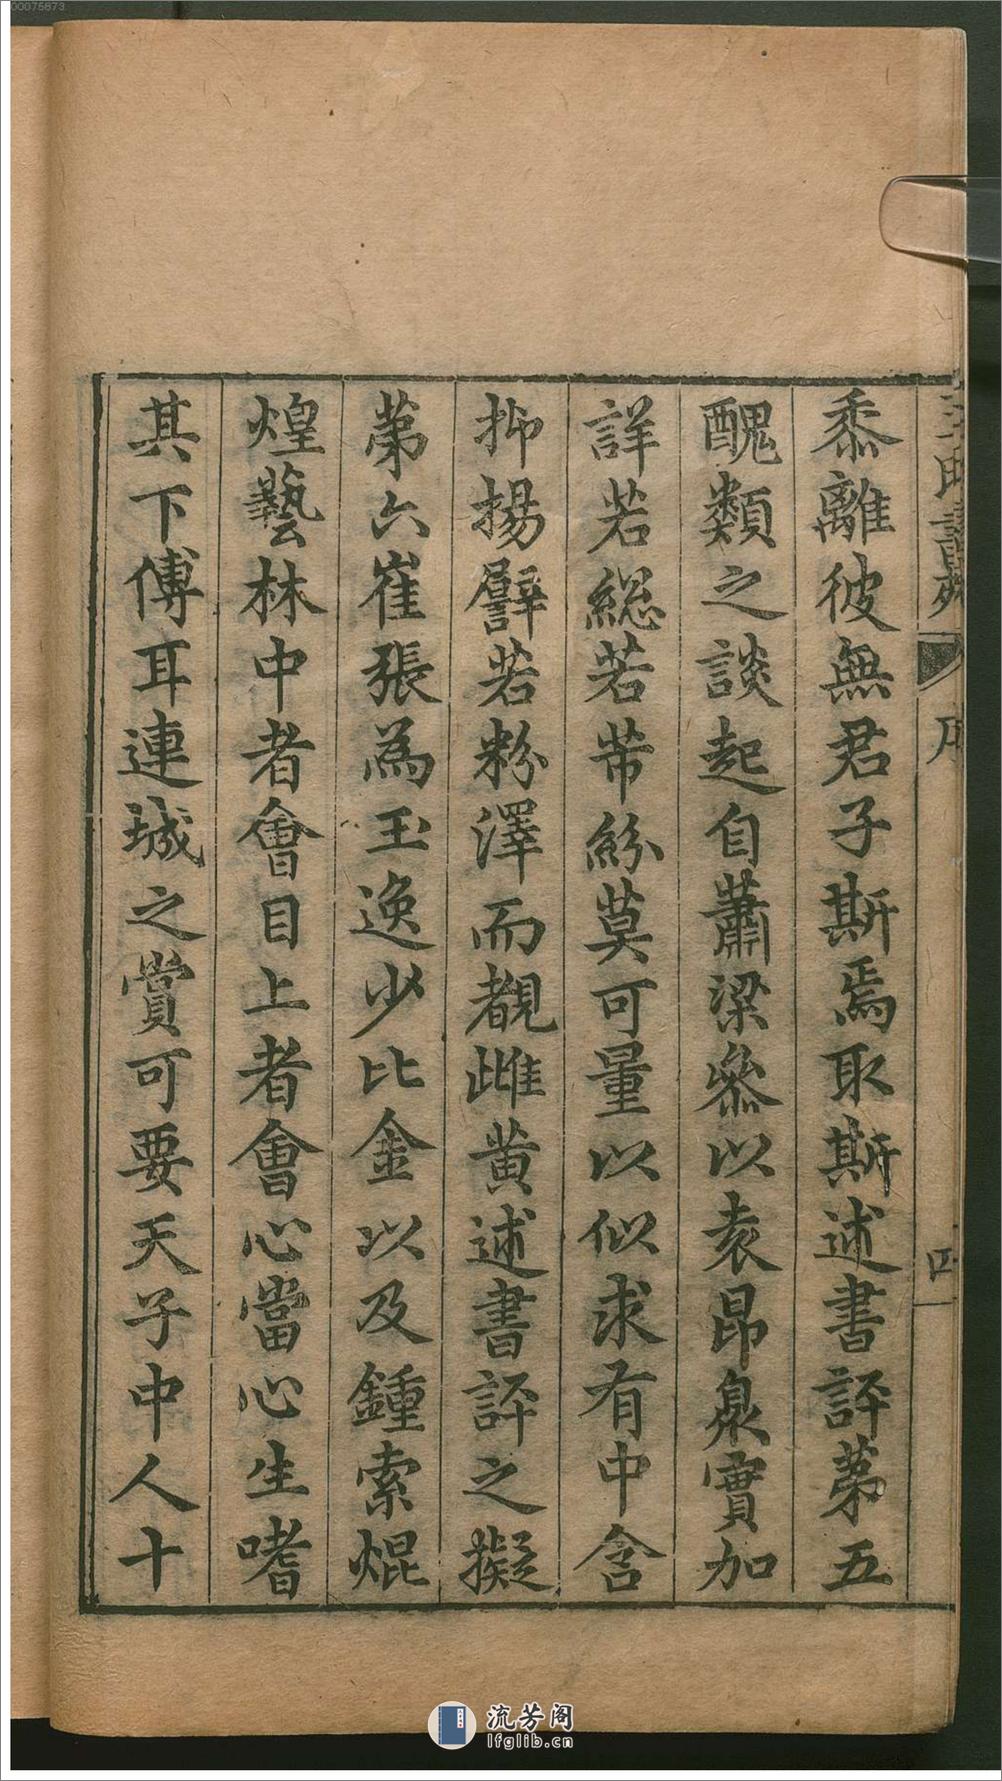 00075873
王氏書苑 序 四
黍離彼無君子斯焉取斯述書評第五
醜類之談起自蕭梁叅以袁昂臮實加
詳若緫若芾紛莫可量以似求有中含
抑揚譬若粉澤而覩雌黄述書評之擬
第六崔張為玉逸少比金以及鍾索焜
煌藝林中者會目上者會心當心生嗜
其下傅耳連城之賞可要天子中人十
流芳阁
lfglib.cn